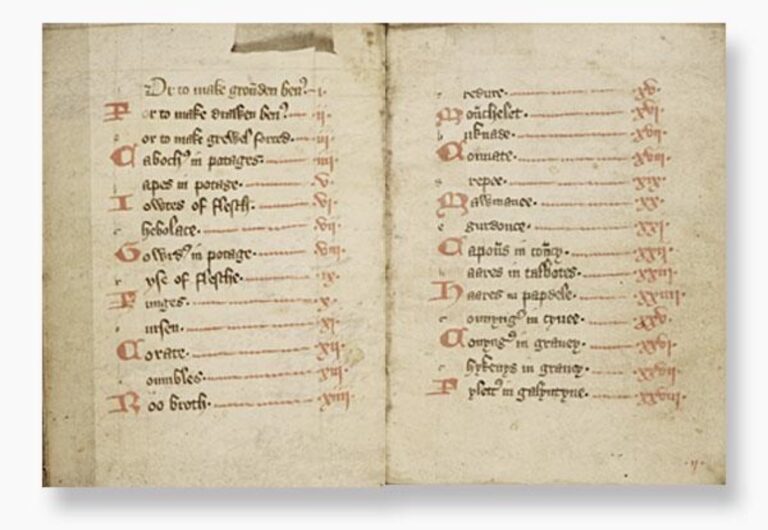 For to make groūden ben̄ · i ·
For to make drawen ben̄ · ii ·
for to make grewel forced · iii ·
Caboch̄ in potages · iiii ·
rapes in potage · v ·
Eowtes of flesch · vi ·
chebolace · vii ·
Gowrd̄ in potage · viii ·
ryse of flesche · ix ·
Funges · x ·
bursen · xi ·
Corate · xii ·
noumbles · xiii ·
Roo broth · xiiii ·
tredure · xv ·
Moūchelet · xvi ·
buknade · xvii ·
Connate · xviii ·
drepee · xix ·
Mawmenee · xx ·
egurdouce · xxi ·
Capoūs in coūcy · xxii ·
haares in talbotes · xxiii ·
Haares in papdele · xxiiii ·
connynḡ in cynee · xxv ·
Connynḡ in gravey · xxvi ·
chykens in gravey · xxvii ·
Fylett̄ in galyntyne · xxviii ·